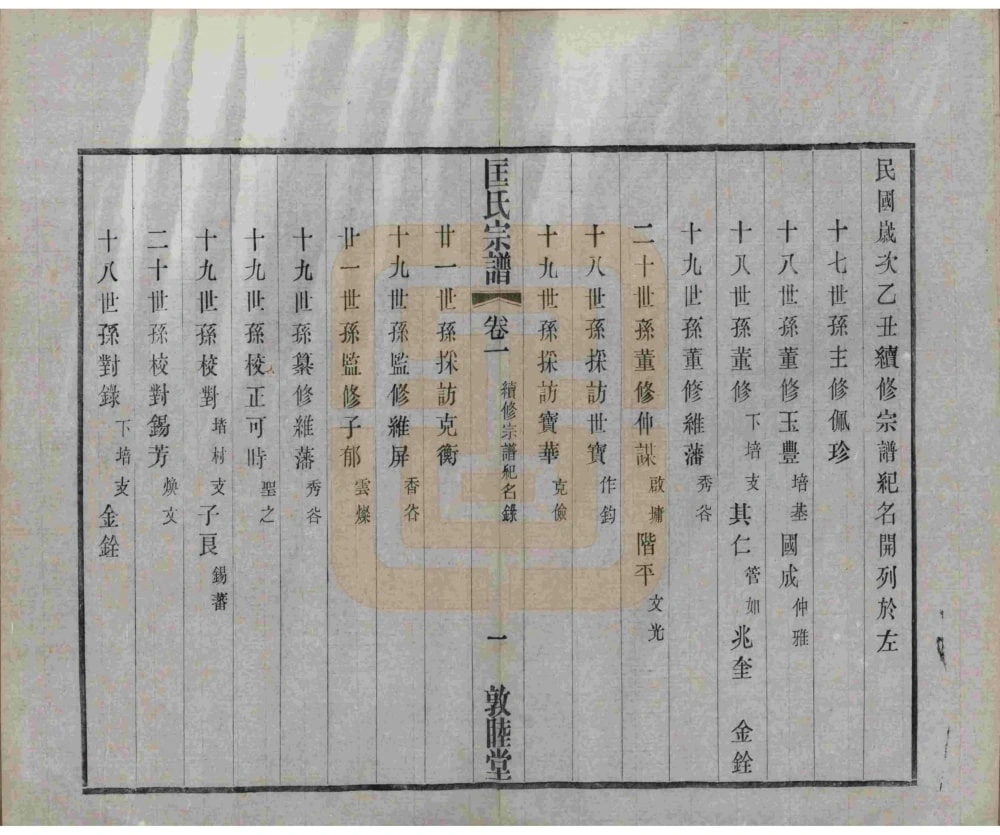 民國歲次乙丑續修宗譜紀名開列於左
十七世孫主修佩珍
十八世孫董修玉豐培基國成仲雅
十八世孫董修下培支其仁管如兆奎金銓
十九世孫董修維藩秀谷
二十世孫董修仲謀啟墉階平文光
十八世孫採訪世寶作鈞
十九世孫採訪寶華克儉
匡氏宗譜 卷一 續修宗譜紀名錄 一 敦睦堂
廿一世孫採訪克衡
十九世孫監修維屏香谷
廿一世孫監修子郁雲燦
十九世孫纂修維藩秀谷
十九世孫校正可時聖之
十九世孫校對堵村支子良錫蕃
二十世孫校對錫芳煥文
十八世孫對錄下培支金銓